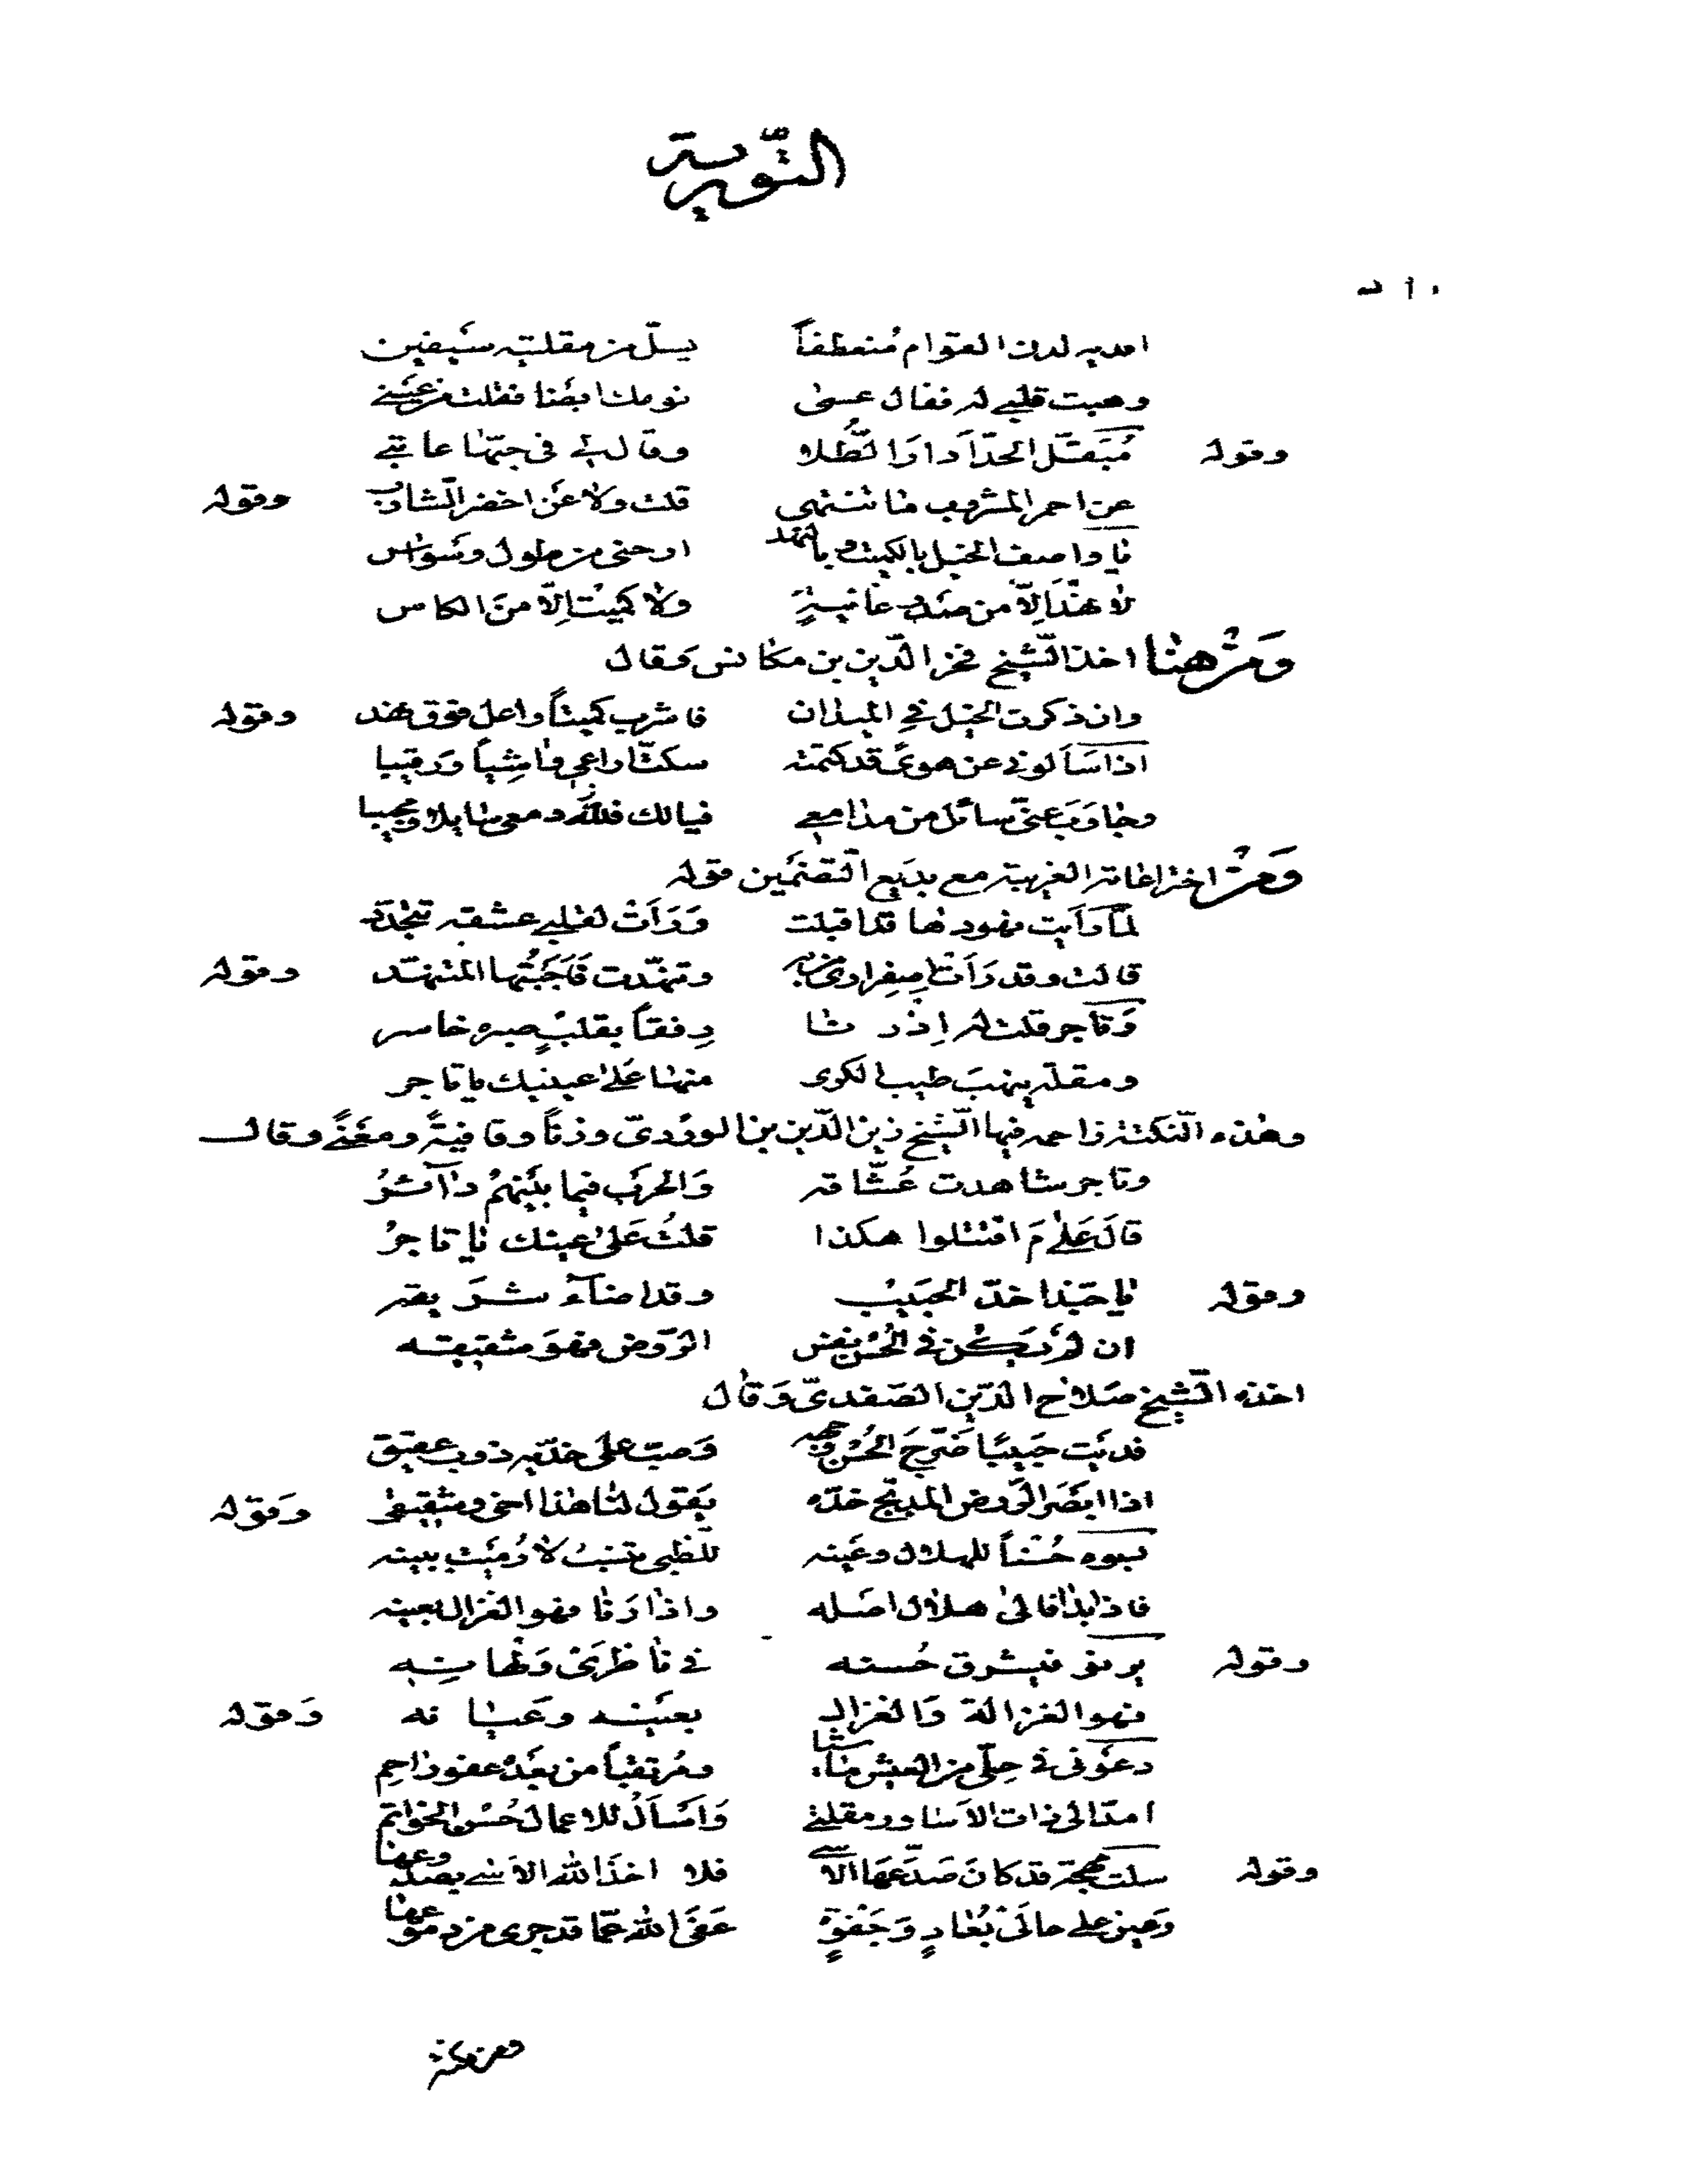 التورية
افديه لدن القوام منعطفاً يسلّ من مقلتيه سيفين
وهبت قلبي له فقال عسى نومك ايضا فقلت من عيني
وقوله مُبَقّل الخدّ ادارَ الطُّلا وقال لي في حبّها عاتبي
عن احمر المشروب ما تنتهي قلت ولا عن اخضر الشارب وقوله
يا واصف الخيل بالكميت وبالنهد ارحني من طول وسواس
لا نهدَ الّا من صدر غانيةٍ ولا كميت الّا من الكاس
ومن هنا اخذ الشيخ فخر الدين بن مكانس وقال
وان ذكرت الخيل في الميدان فاشرب كميتاً واعل فوق نهد وقوله
اذا سَألوني عن هوىً قد كتمته سكتّ اراعي واشياً ورقيبا
وجاوب عني سائل من مدامعي فيالك دمعي سايلا ومجيبا
ومن اختراعاته الغريبة مع بديع التضمين قوله
لمّا رأيت نهودها قد اقبلت ورأت لقلبي عشقه تتجدّد
قالت وقد رأت اصفراري من به وتنهّدت فأجبتها المتنهّد وقوله
وتاجر قلت له اذ رنا رفقاً بقلبٍ صبره خاسر
ومقلة ينهب طيب الكرى منها على عينيك يا تاجر
وهذه النكتة زاحمه فيها الشيخ زين الدين بن الوردى وزناً وقافيةً ومعنىً وقال
وتاجر شاهدت عُشّاقه والحرب فيما بينهم دآئرُ
قال علٰى مَ اقتتلوا هكذا قلتُ على عينك يا تاجرُ
وقوله يا حبّذا خدّ الحبيب وقد اضآء شريقه
ان لم يكن في الحسن نفس الروض فهو شقيقه
اخذه الشيخ صلاح الدين الصفدىّ وقال
فديت حبيبًا ضرّج الحسن وجهه وصبّ على خدّيه ذوب عقيق
اذا ابصر الروض المدبّج خدّه يقول لنا هذا اخي وشقيقي وقوله
حُسناً للهلال وعينه للظبي لا رُميت ببينه
فاذا بدا فالى هلال اصله واذا رنا فهو الغزال بعينه
وقوله يرنو فيشرق حُسنه في ناظري
فهو الغزالة والغزال بعينه وعيانه وقوله
دعَوني في حلّى من العيش مائسًا ومُرتقباً من بعده عفو راحم
امدّ الى ذات الاساور مقلتي وأسأل للاعمال حُسن الخواتم
وقوله سلت مهجة قد كان صدّعها الاسى فلا اخذ الله الاسى بصدوعها
وعين على حالَي بُعادٍ وجفوةٍ عفى الله عمّا قد جرى من دموعها
ومن نكته